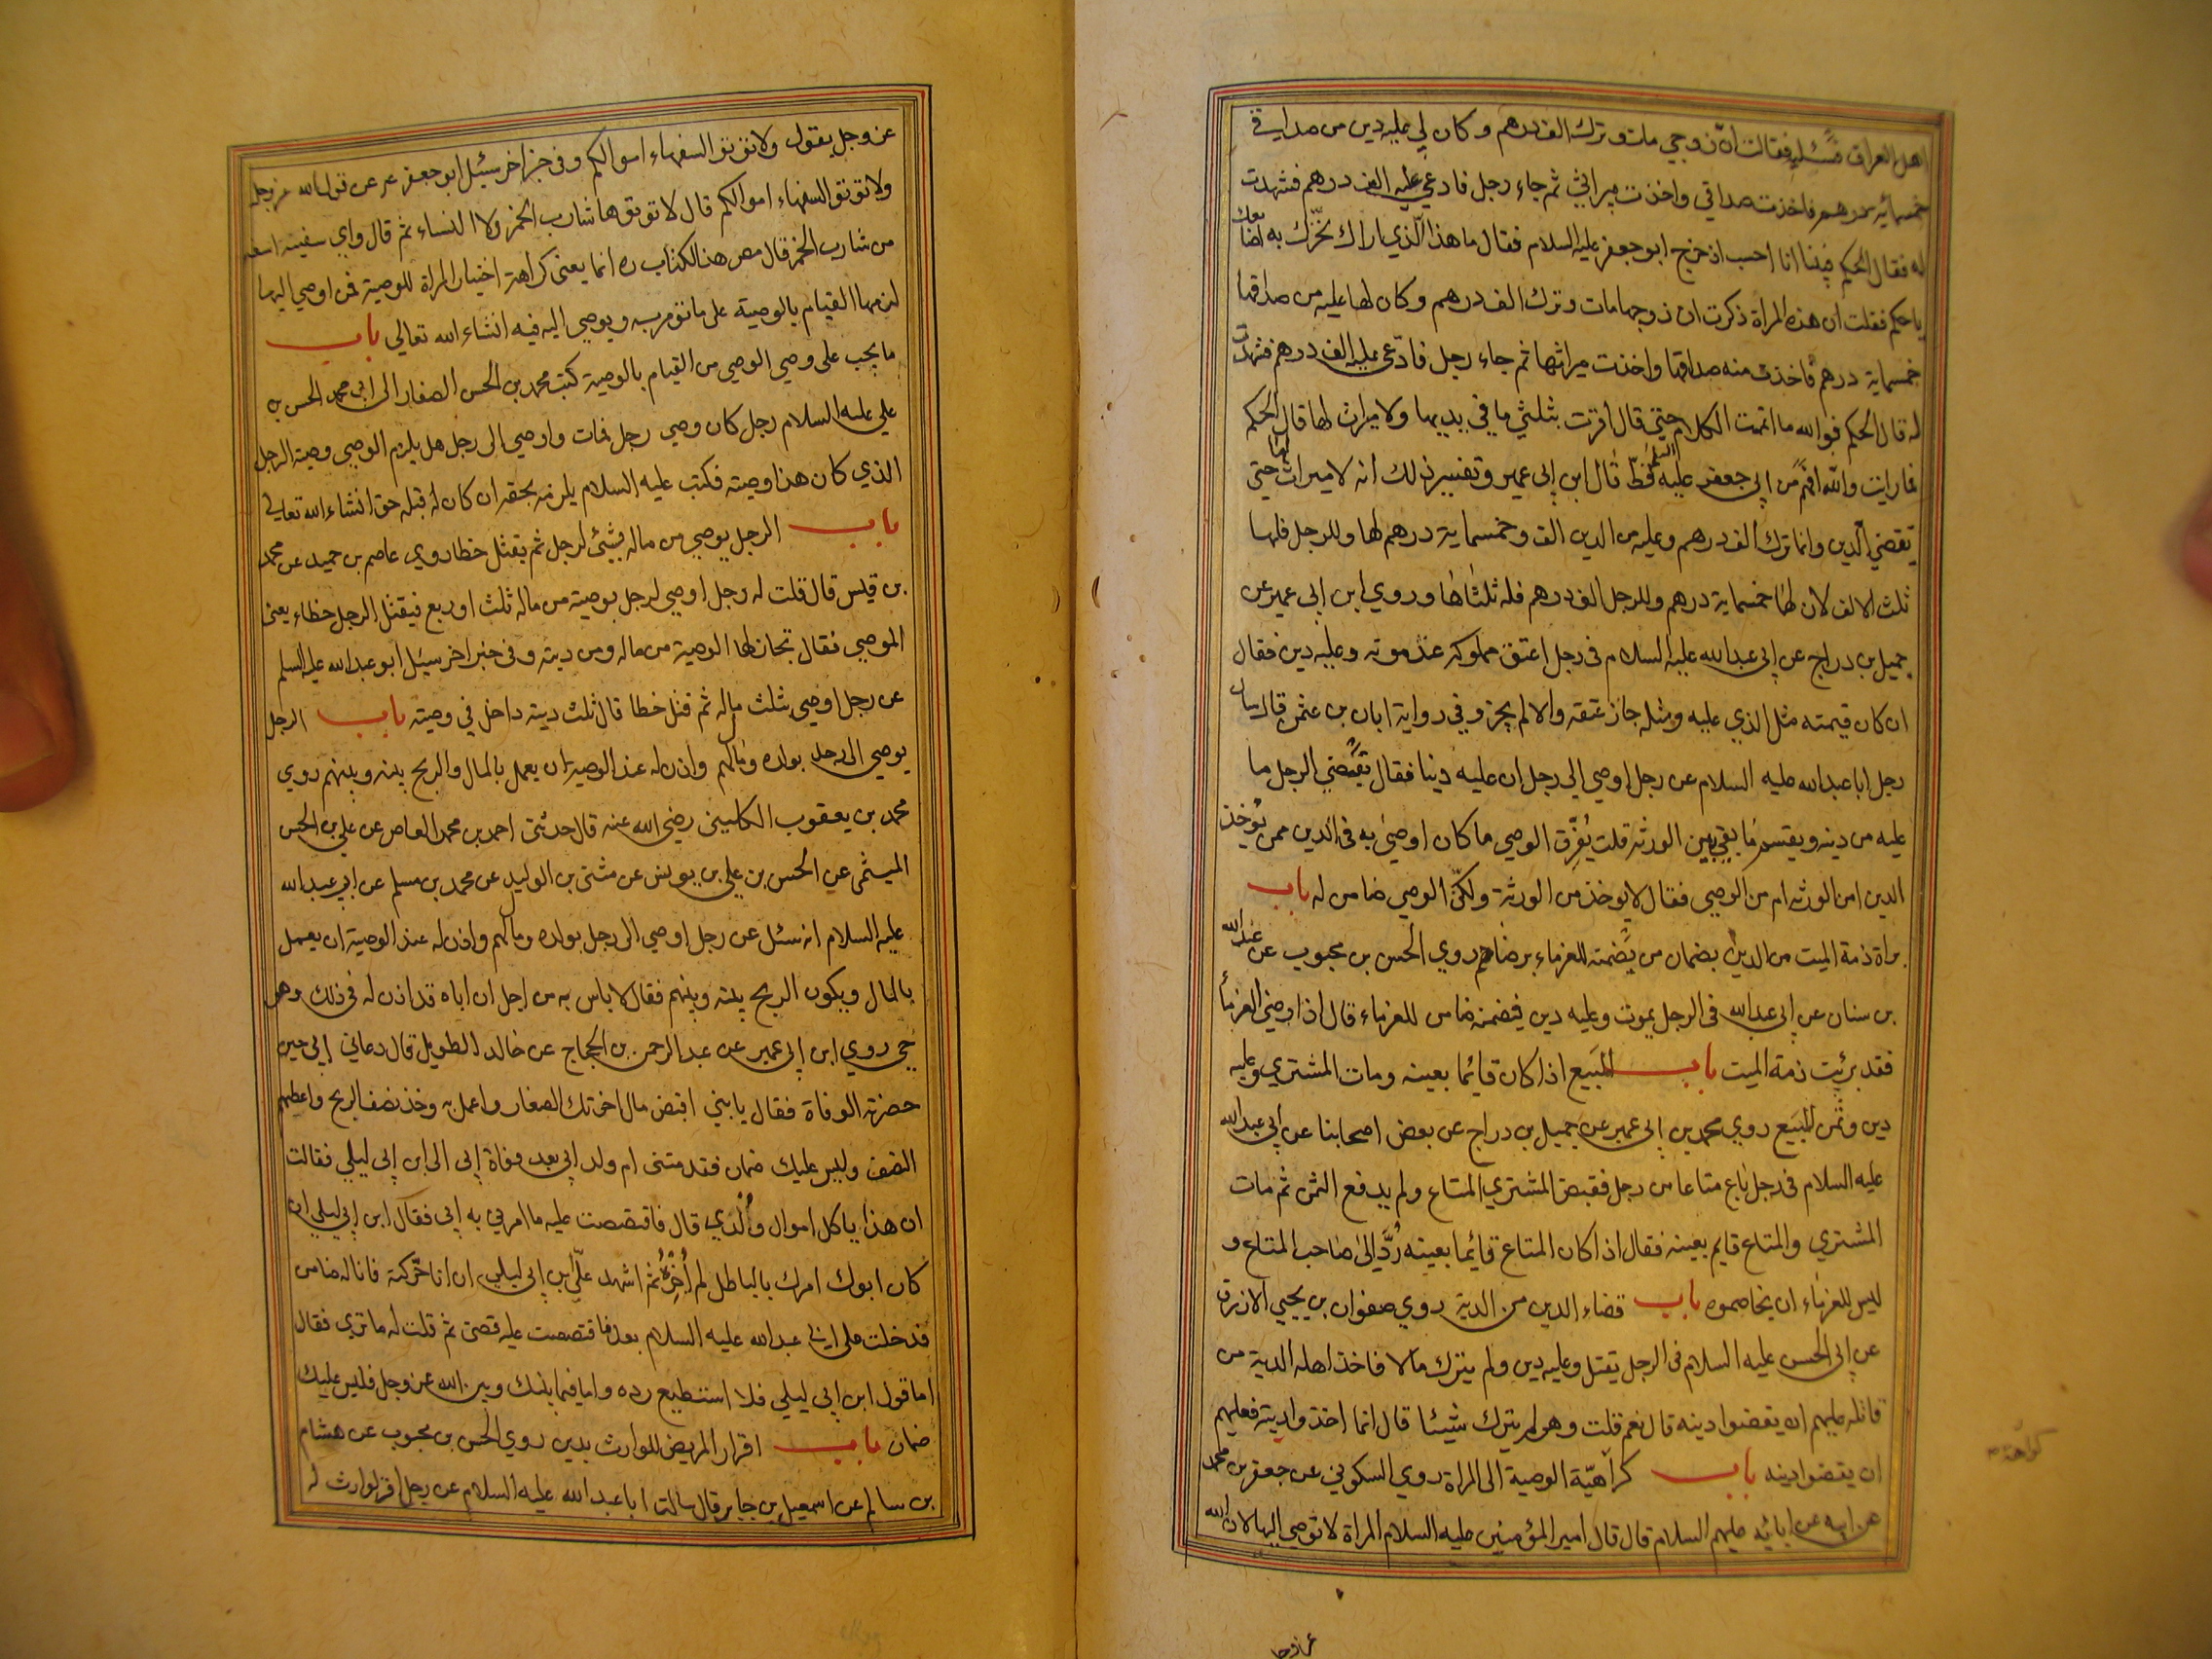 اهل العراق مسئلة فقالت ان زوجي مات وترك الف درهم وكان لي عليه دين من صداقي
خمسمائة درهم فاخذت صداقي واخذت ميراثي ثم جاء رجل فادعي عليه الف درهم فشهدت
له فقال الحكم فبينا انا احسب اذ خرج ابو جعفر عليه السلام فقال ما هذا الذي اراك تحرك به اصابعك
يا حكم فقلت ان هذه المراة ذكرت ان زوجها مات وترك الف درهم وكان لها عليه من صداقها
خمسماية درهم فاخذت منه صداقها واخذت ميراثها ثم جاء رجل فادعى عليه الف درهم فشهدت
له قال الحكم فوالله ما اتممت الكلام حتي قال اقرت بثلثي ما في يديها ولا ميراث لها قال الحكم
فما رايت والله افهم من ابي جعفر عليه السلم قط قال ابن ابي عمير وتفسير ذلك انه لا ميراث لها حتي
تقضي الدين وانما ترك الف درهم وعليه من الدين الف وخمسماية درهم لها وللرجل فلها
ثلث الالف لان لها خمسماية درهم وللرجل الف درهم فله ثلثاها وروي ابن ابي عمير عن
جميل بن دراج عن ابي عبد الله عليه السلام في رجل اعتق مملوكه عند موته وعليه دين فقال
ان كان قيمته مثل الذي عليه ومثله جاز عتقه والا لم يجز وفي رواية ابان بن عثمن قال سال
رجل ابا عبد الله عليه السلام عن رجل اوصي الي رجل ان عليه دينا فقال يقضي الرجل ما
عليه من دينه ويقسم ما بقي بين الورثة قلت يفرق الوصي ما كان اوصي به في الدين ممن يوخذ
الدين امن الورثه ام من الوصي فقال لا يوخذ من الورثة ولكن الوصي ضامن له باب
براة ذمة الميت من الدين بضمان من يضمنه للغرماء برضاهم روي الحسن بن محبوب عن عبد الله
بن سنان عن ابي عبد الله في الرجل يموت وعليه دين فيضمنه ضامن للغرماء قال اذا رضي الغرماء
فقد برئت ذمة الميت باب المبيع اذا كان قائما بعينه ومات المشتري وعليه
دين وثمن المبيع روي محمد بن ابي عمير عن جميل بن دراج عن بعض اصحابنا عن ابي عبد الله
عليه السلام في رجل باع متاعا من رجل فقبض المشتري المتاع ولم يدفع الثمن ثم مات
المشتري والمتاع قايم بعينه فقال اذا كان المتاع قائما بعينه رد الي صاحب المتاع و
ليس للغرماء ان يخاصموه باب قضاء الدين من الدية روي صفوان بن يحيي الازرق
عن ابي الحسن عليه السلام في الرجل يقتل وعليه دين ولم يترك مالا فاخذ اهله الدية من
قاتله عليهم ان يقضوا دينه قال نعم قلت وهو لم يترك شيئا قال انما اخذوا ديته فعليهم
ان يقضوا دينه باب كراهية الوصية الى المراة روي السكوني عن جعفر بن محمد
عن ابيه عن ابائه عليهم السلام قال قال امير المؤمنين عليه السلام المراة لا توصي اليها لان الله
عز وجل
عز وجل يقول ولا تؤتوا السفهاء اموالكم وفي خبر اخر سئل ابو جعفر ع عن قول الله عز وجل
ولا تؤتوا السفهاء اموالكم قال لا تؤتوها شارب الخمر ولا النساء ثم قال واي سفيه اسفه
من شارب الخمر قال مص هذا الكتاب ره انما يعني كراهة اختيار المراة للوصية فمن اوصي اليها
لزمها القيام بالوصية على ما تؤمر به ويوصي اليه فيه انشاء الله تعالي باب
ما يجب على وصي الوصي من القيام بالوصية كتب محمد بن الحسن الصفار الى ابي محمد الحسن بن
علي عليه السلام رجل كان وصي رجل فمات واوصي الى رجل هل يلزم الوصي وصية الرجل
الذي كان هذا وصيته فكتب عليه السلام يلزمه بحقه ان كان له قبله حق انشاء الله تعالي
باب الرجل يوصي من ماله بشئ لرجل ثم يقتل خطا روي عاصم بن حميد عن محمد
بن قيس قال قلت له رجل اوصي لرجل بوصية من ماله ثلث او ربع فيقتل الرجل خطاء يعني
الموصي فقال تجاز لهذا الوصية من ماله ومن ديته وفي خبر اخر سئل ابو عبد الله عليه السلم
عن رجل اوصي بثلث ماله ثم قتل خطا قال ثلث ديته داخل في وصيته باب الرجل
يوصي الى رجل بولده ومالهم واذن له عند الوصية ان يعمل بالمال والربح بينه وبينهم روي
محمد بن يعقوب الكليني رضي الله عنه قال حدثني احمد بن محمد العاص عن علي بن الحسن
الميثمي عن الحسن بن علي بن يونس عن مثنى بن الوليد عن محمد بن مسلم عن ابي عبد الله
عليه السلام انه سئل عن رجل اوصي الى رجل بولده ومالهم واذن له عند الوصية ان يعمل
بالمال ويكون الربح بينه وبينهم فقال لا باس به من اجل ان اباه قد اذن له في ذلك وهو
حي روي ابن ابي عمير عن عبد الرحمن بن الحجاج عن خالد الطويل قال دعاني ابي حين
حضرته الوفاة فقال يا بني اقبض مال اخوتك الصغار واعمل به وخذ نصف الربح واعطهم
النصف وليس عليك ضمان فقدمتني ام ولد ابي بعد وفاة ابي الى ابن ابي ليلي فقالت
ان هذا ياكل اموال ولدي قال فاقتصصت عليه ما امرني به ابي فقال ابن ابي ليلي ان
كان ابوك امرك بالباطل لم اجزه ثم اشهد علي ابن ابي ليلي ان انا حركته فانا له ضامن
فدخلت على ابي عبد الله عليه السلام بعد فاقتصصت عليه قصتي ثم قلت له ما ترى فقال
اما قول ابن ابي ليلي فلا استطيع رده واما فيما بينك وبين الله عز وجل فليس عليك
ضمان باب اقرار المريض للوارث بدين روي الحسن بن محبوب عن هشام
بن سالم عن اسمعيل بن جابر قال سالت ابا عبد الله عليه السلام عن رجل اقر لوارث له